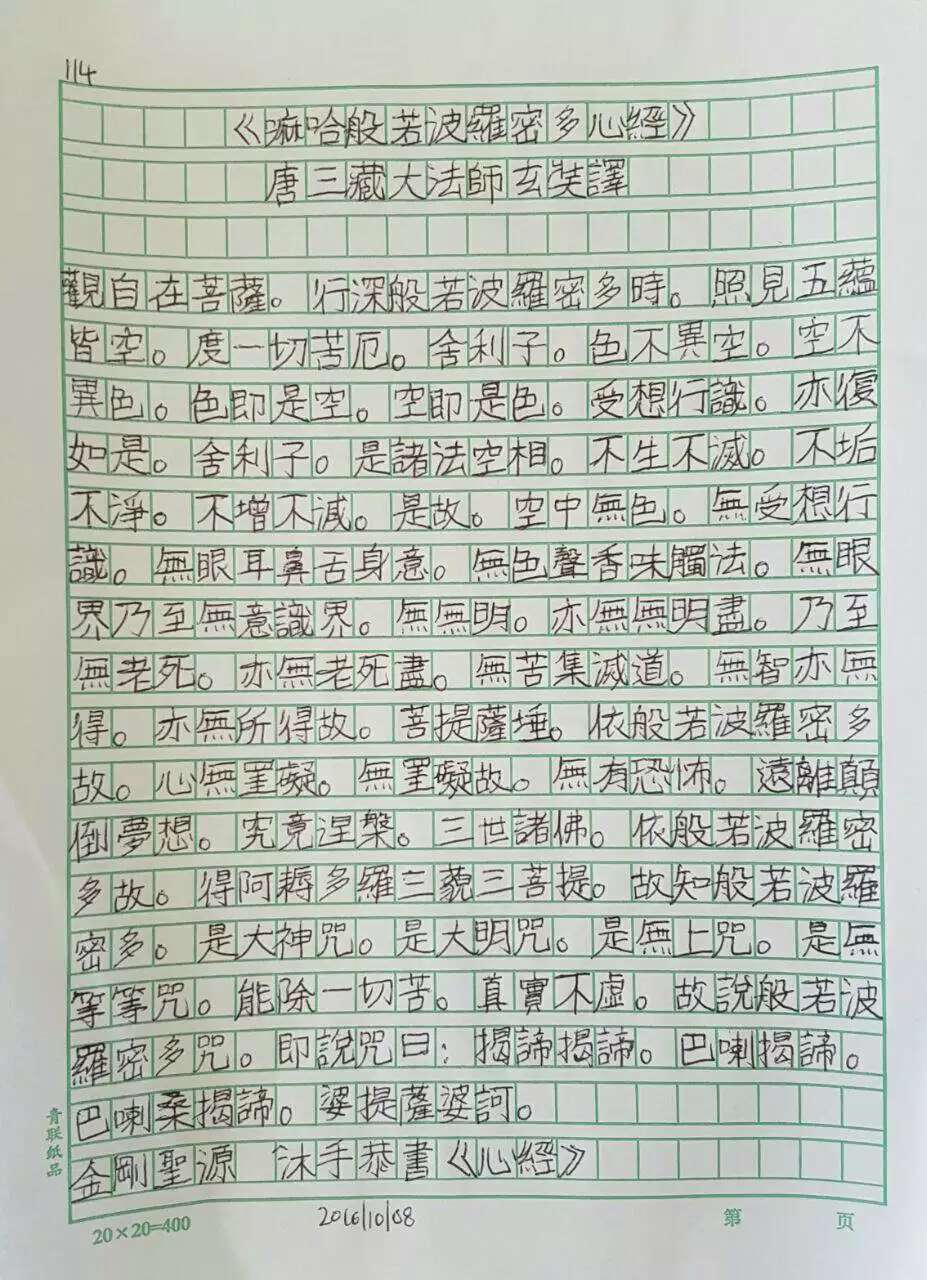 114
《嘛哈般若波羅密多心經》
唐三藏大法師玄奘譯
觀自在菩薩。行深般若波羅密多時。照見五蘊
皆空。度一切苦厄。舍利子。色不異空。空不
異色。色即是空。空即是色。受想行識。亦復
如是。舍利子。是諸法空相。不生不滅。不垢
不淨。不增不減。是故。空中無色。無受想行
識。無眼耳鼻舌身意。無色聲香味觸法。無眼
界乃至無意識界。無無明。亦無無明盡。乃至
無老死。亦無老死盡。無苦集滅道。無智亦無
得。亦無所得故。菩提薩埵。依般若波羅密多
故。心無罣礙。無罣礙故。無有恐怖。遠離顛
倒夢想。究竟涅槃。三世諸佛。依般若波羅密
多故。得阿耨多羅三藐三菩提。故知般若波羅
密多。是大神咒。是大明咒。是無上咒。是無
等等咒。能除一切苦。真實不虛。故說般若波
羅密多咒。即說咒曰：揭諦揭諦。巴喇揭諦。
巴喇桑揭諦。婆提薩婆訶。
金剛聖源 沐手恭書《心經》
青联纸品
20×20=400 2016/10/08 第 页